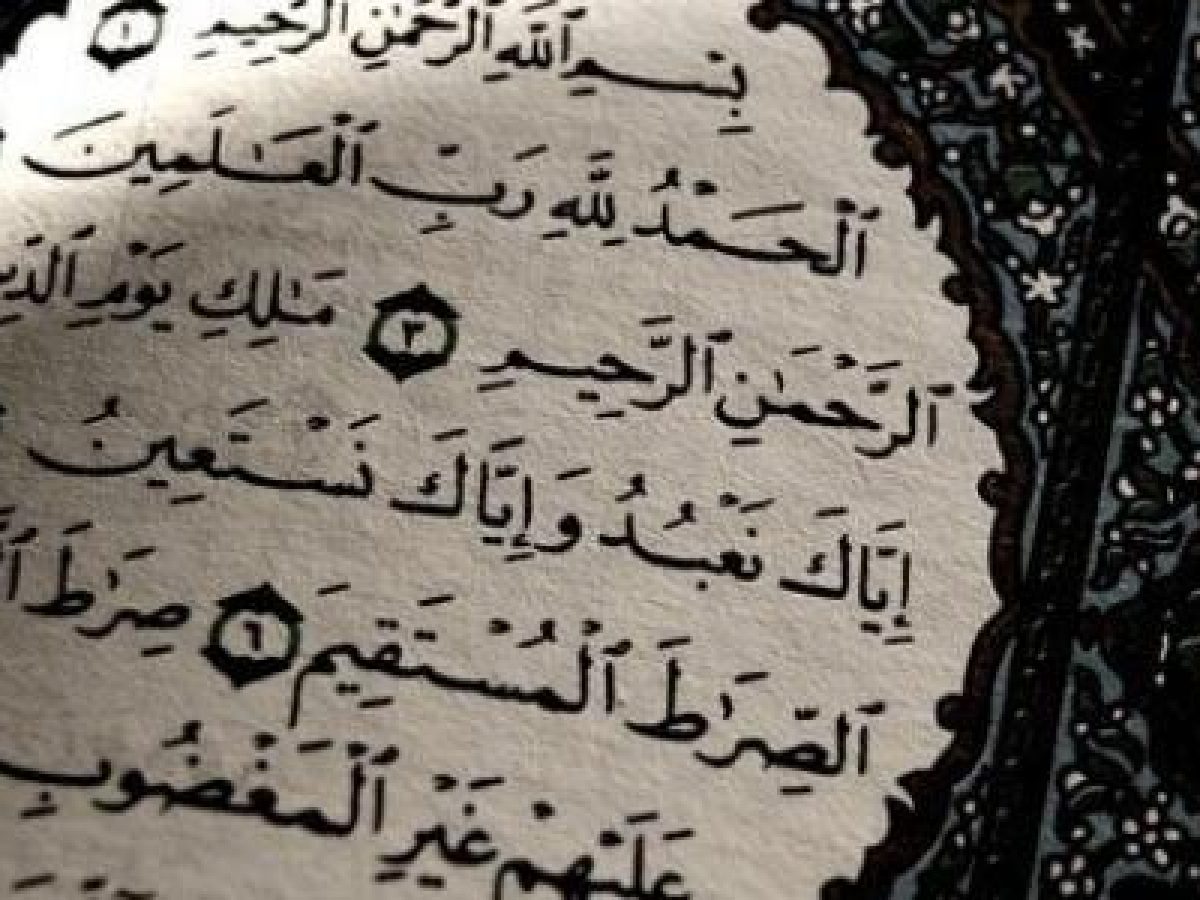 بِسْمِ ٱللَّهِ ٱلرَّحْمَٰنِ ٱلرَّحِيمِ ١
ٱلْحَمْدُ لِلَّهِ رَبِّ ٱلْعَٰلَمِينَ
ٱلرَّحْمَٰنِ ٱلرَّحِيمِ ٣ مَٰلِكِ يَوْمِ
إِيَّاكَ نَعْبُدُ وَإِيَّاكَ نَسْتَعِينُ
ٱلصِّرَٰطَ ٱلْمُسْتَقِيمَ ٦ صِرَٰطَ
عَلَيْهِمْ غَيْرِ ٱلْمَغْضُوبِ